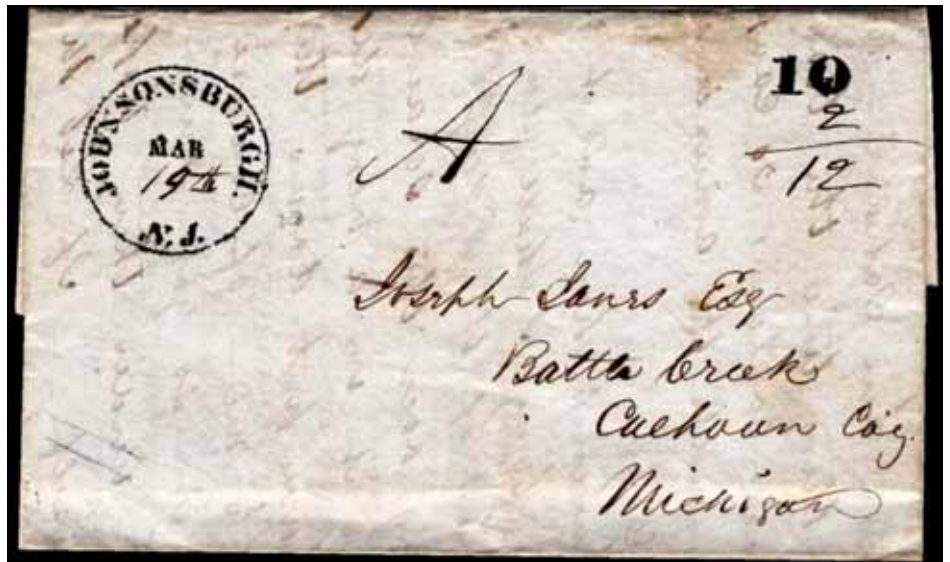 JOHNSONSBURGH.
MAR
19th
N. J.
A
10
2
12
Joseph Esq
Battle Creek
Calhoun Coy.
Michigan